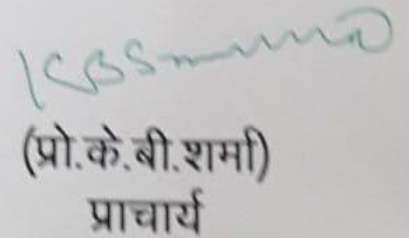 KBSharma
(प्रो.के.बी.शर्मा)
प्राचार्य